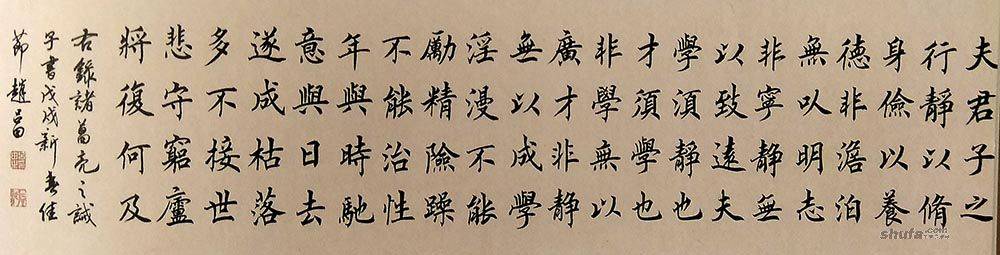 夫君子之
行靜以脩
身儉以養
德非澹泊
無以明志
非寧靜無
以致遠夫
學須靜也
才須學也
非學無以
廣才非靜
無以成學
淫漫不能
勵精險躁
不能治性
年與時馳
意與日去
遂成枯落
多不接世
悲守窮廬
將復何及
右錄諸葛亮之誡
子書戊戌新春佳
節趙
shufa.com